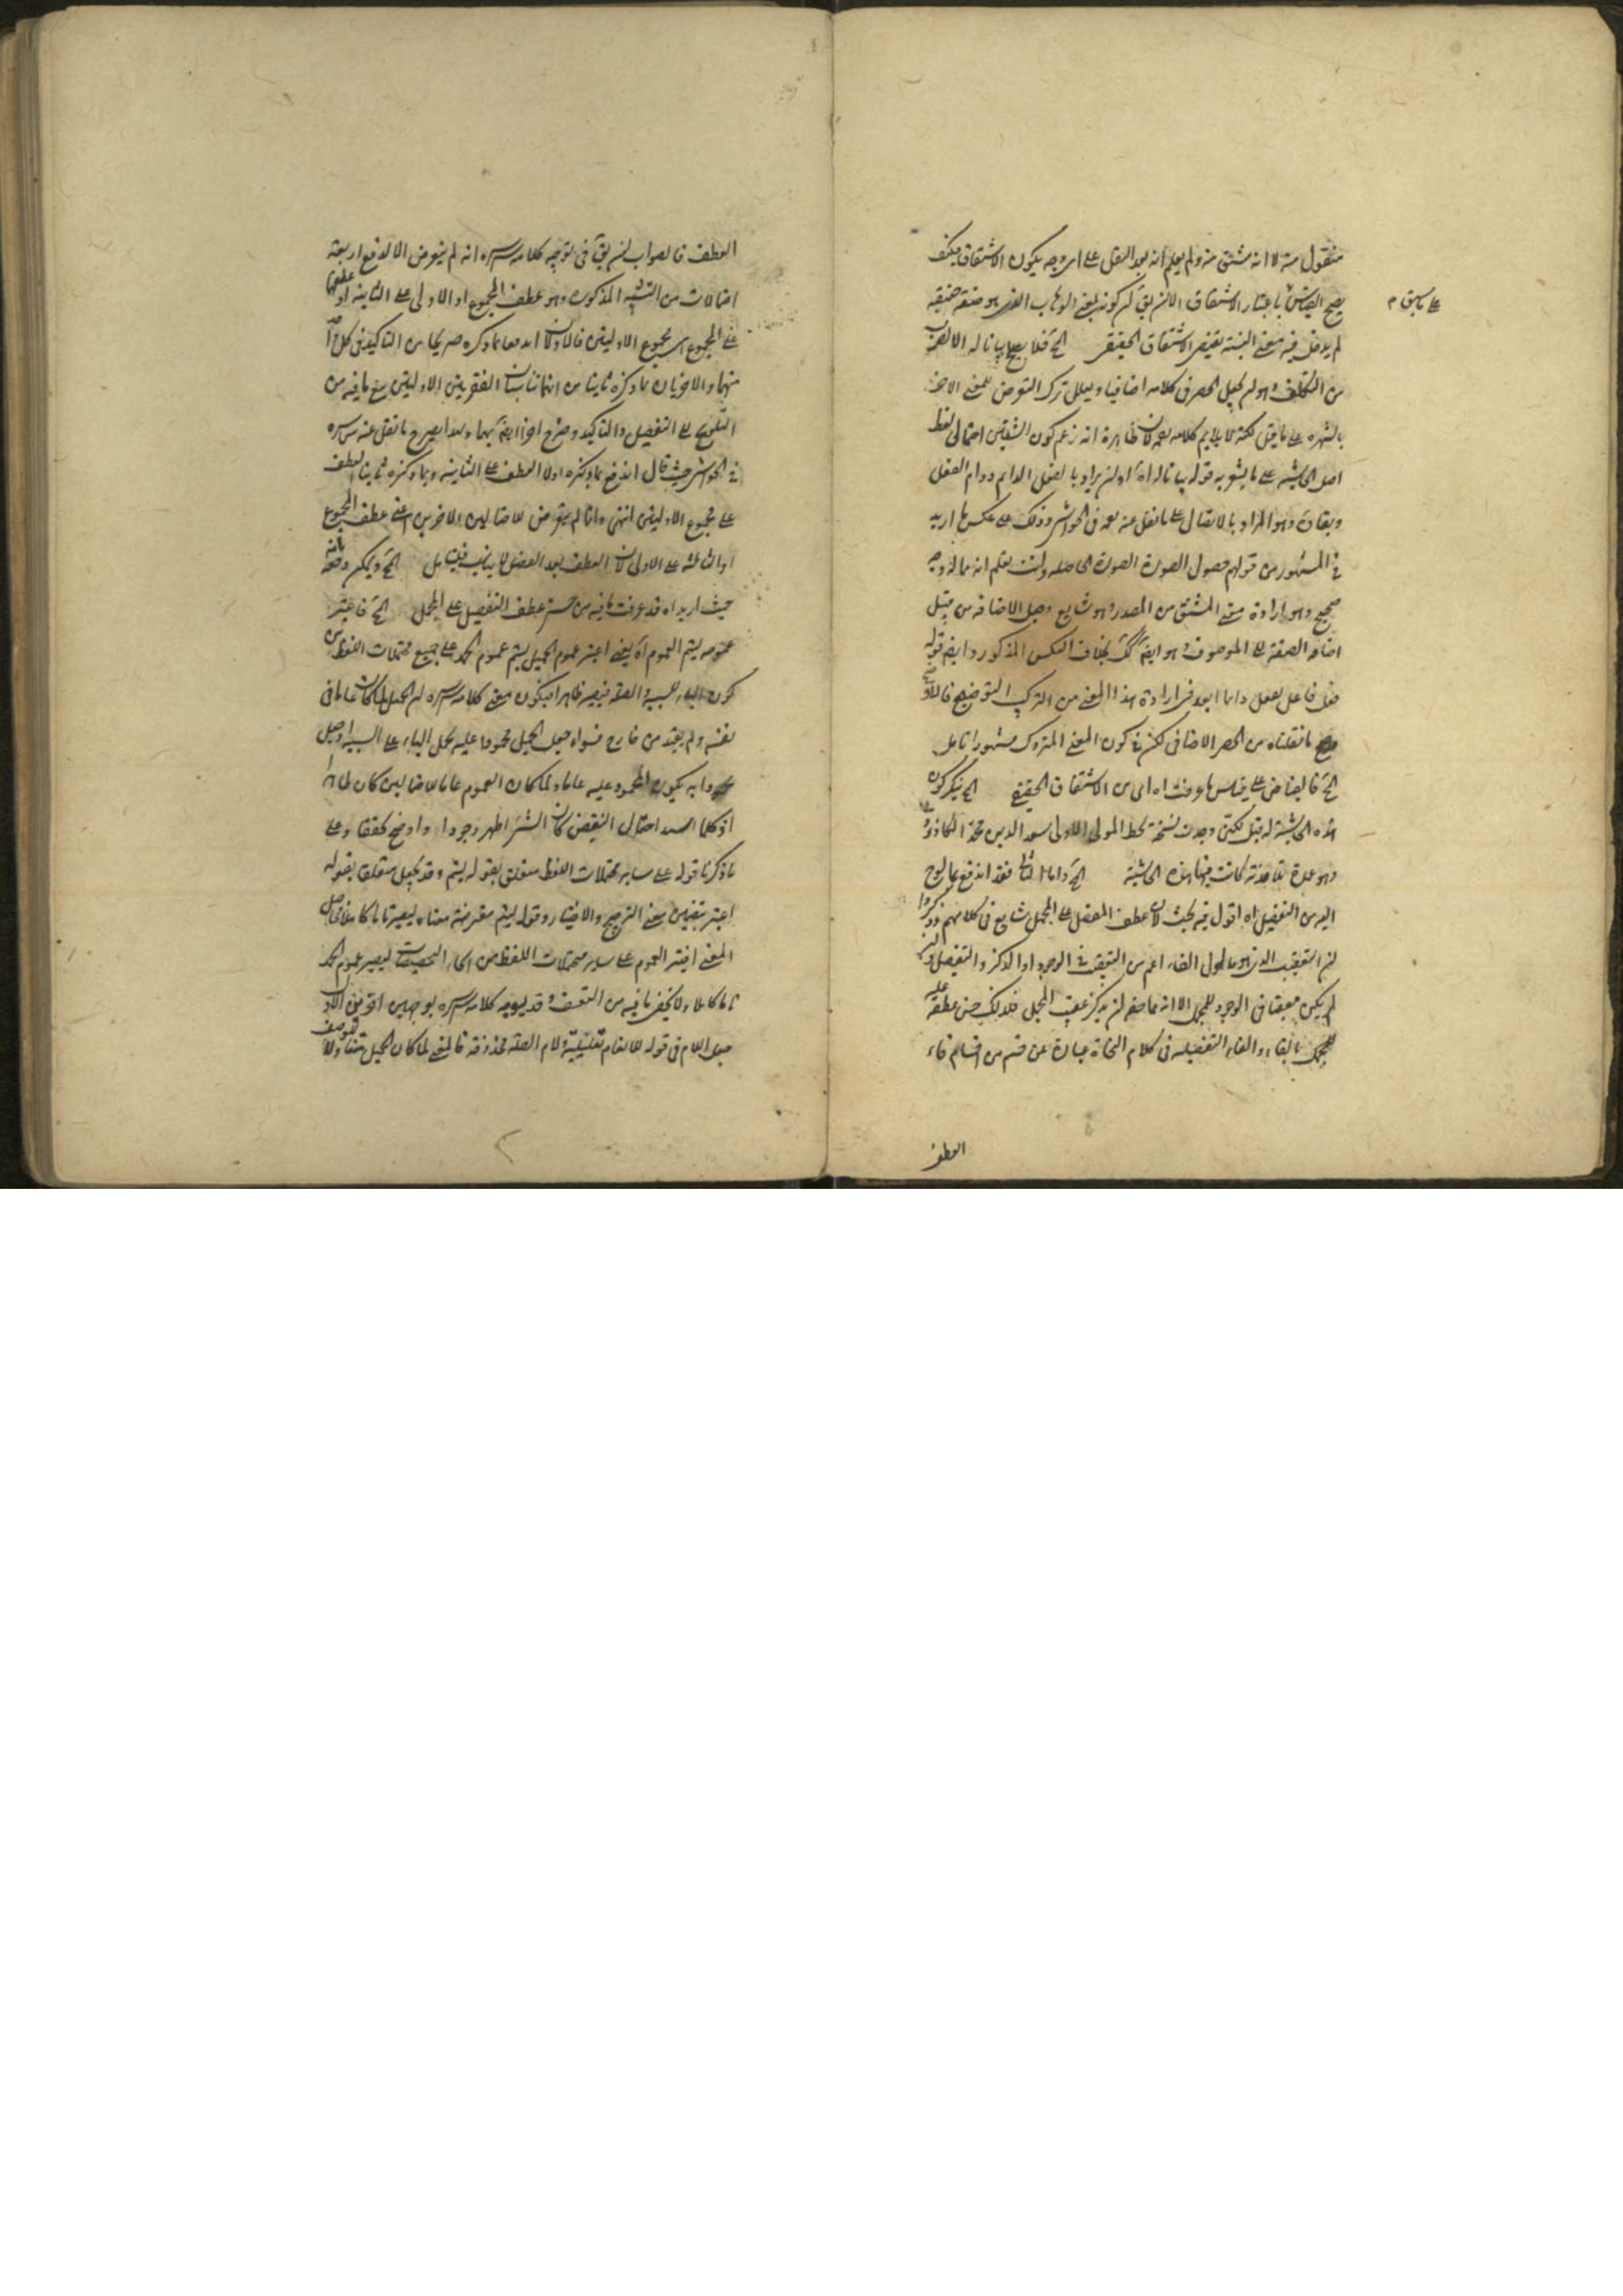 منقول منه لا انه مشتق منه ولم يعلم انه بعد النقل على اى وجه يكون الاشتقاق فكيف
يصح القياس باعتبار الاشتقاق الا ان يق كونه بمعنى الوهاب الذى هو صفة حقيقة
على ما سبق م
لم يدخل فيه معنى النسبة يقتضى الاشتقاق الحقيقى الخ فلا يصح
من التكلف وهو لم يجعل الحصر فى كلامه اضافيا ويعلل ترك التعرض للمعنى الاخر
بالشهرة على ما قيل لكنه لا يلايم كلامه بعد لان ظاهره انه زعم كون الشقين احتمالى لفظ
اصل الحاشية على ما يشعر به قوله اه او ان يراد بالفعل الدايم دوام الفعل
وبقاؤه وهو المراد بالاتصال على ما نقل عنه بعد فى الحواشى وذلك على عكس ما اريد
فى المشهور من قولهم حصول الصورة الصورة الحاصلة وانت تعلم انه ماله وجه
صحيح وهو ارادة معنى المشتق من المصدر وهو شايع وجعل الاضافة من قبيل
اضافة الصفة الى الموصوف وهو ايضا كك بخلاف العكس المذكور وايضا قوله
فعل فاعل يفعل دايما ابعد فى ارادة هذا المعنى من التركيب التوضيح فالاوضح
ما نقلناه من الحصر الاضافى لكن فى كون المعنى المتروك مشهورا تامل
الخ فالفياض على قياس ما عرفت اه اى من الاشتقاق الحقيقى الخ ينكر كون
هذه الحاشية له قيل لكنى وجدت نسخة بخط المولى الاولى سعد الدين محمد الكاذرونى
وهو عمدة تلامذته كانت فيها هذه الحاشية الخ واما الثالث فقد اندفع بما لوح
اليه من التفصيل اه اقول فيه بحث لان عطف المفصل على المجمل شايع فى كلامهم وذكروا
ان التعقيب الذى هو مدلول الفاء اعم من التعقيب فى الوجود او الذكر والتفصيل وان
لم يكن معقبا فى الوجود للمجمل الا انه مما حقه ان يذكر عقيب المجمل فلذلك حسن عطفه عليه
للمجمل بالفاء والفاء التفصيلية فى كلام النحاة عبارة عن قسم من اقسام فاء
العطف
العطف فالصواب ان يق فى توجيه كلامه سره انه لم يتعرض الا لدفع اربعة
احتمالات من المذكورة وهو عطف المجموع او الاولى على الثانية او عطفها
على المجموع اى مجموع الاوليين فالاولان اندفعا بما ذكره صريحا من التاكيد فى كل
منهما والاخريان بما ذكره ثانيا من انهما تناسبان الفقرتين الاوليين مع ما فيه من
التلويح الى التفصيل والتاكيد وصرح اخرا ايضا بهما وبهذا يصرح ما نقل عنه سره
فى الحواشى حيث قال اندفع بما ذكره اولا العطف على الثانية وبما ذكره ثانيا العطف
على مجموع الاوليين انتهى وانما لم يتعرض للاحتمالين الاخرين اعنى عطف المجموع
او الثالثة على الاولى لان العطف بعد الفصل لا يناسب فليتامل الخ ويمكن دفعه بانه
حيث اريد اه قد عرفت ما فيه من حسن عطف التفصيل على المجمل الخ فاعتبر
عمومه ليتم العموم اه يعنى اعتبر عموم الجميل ليتم عموم الحمد على جميع محتملات اللفظ من
كون الباء للسببية والصلة فيصير ظاهرا فيكون معنى كلامه سره ان الجميل لما كان عاما فى
نفسه ولم يقيد من خارج فسواء جعل الجميل محمودا عليه بحمل الباء على السببية او جعل
محمودا به يكون المحمود عليه عاما ولما كان العموم عاما للاحتمالين كان ظاهرا
اذ كلما انسد احتمال النقيض كان الشئ اظهر وجودا واوضح تحققا وعلى
ما ذكرنا قوله على ساير محتملات اللفظ متعلق بقوله ليتم وقد يجعل متعلقا بقوله
اعتبر بتضمين معنى الترجيح والاختيار وقوله ليتم معترضة معناه ليصير تاما كاملا فحاصل
المعنى اختير العموم على ساير محتملات اللفظ من انحاء التخصيصات ليصير عموم الحمد
تاما كاملا ولا يخفى ما فيه من التعسف وقد يوجه كلامه سره بوجهين اخرين الاول
جعل اللام فى قوله للانعام تعليلية ولام الصلة محذوفة فالمعنى لما كان الجميل متناولا